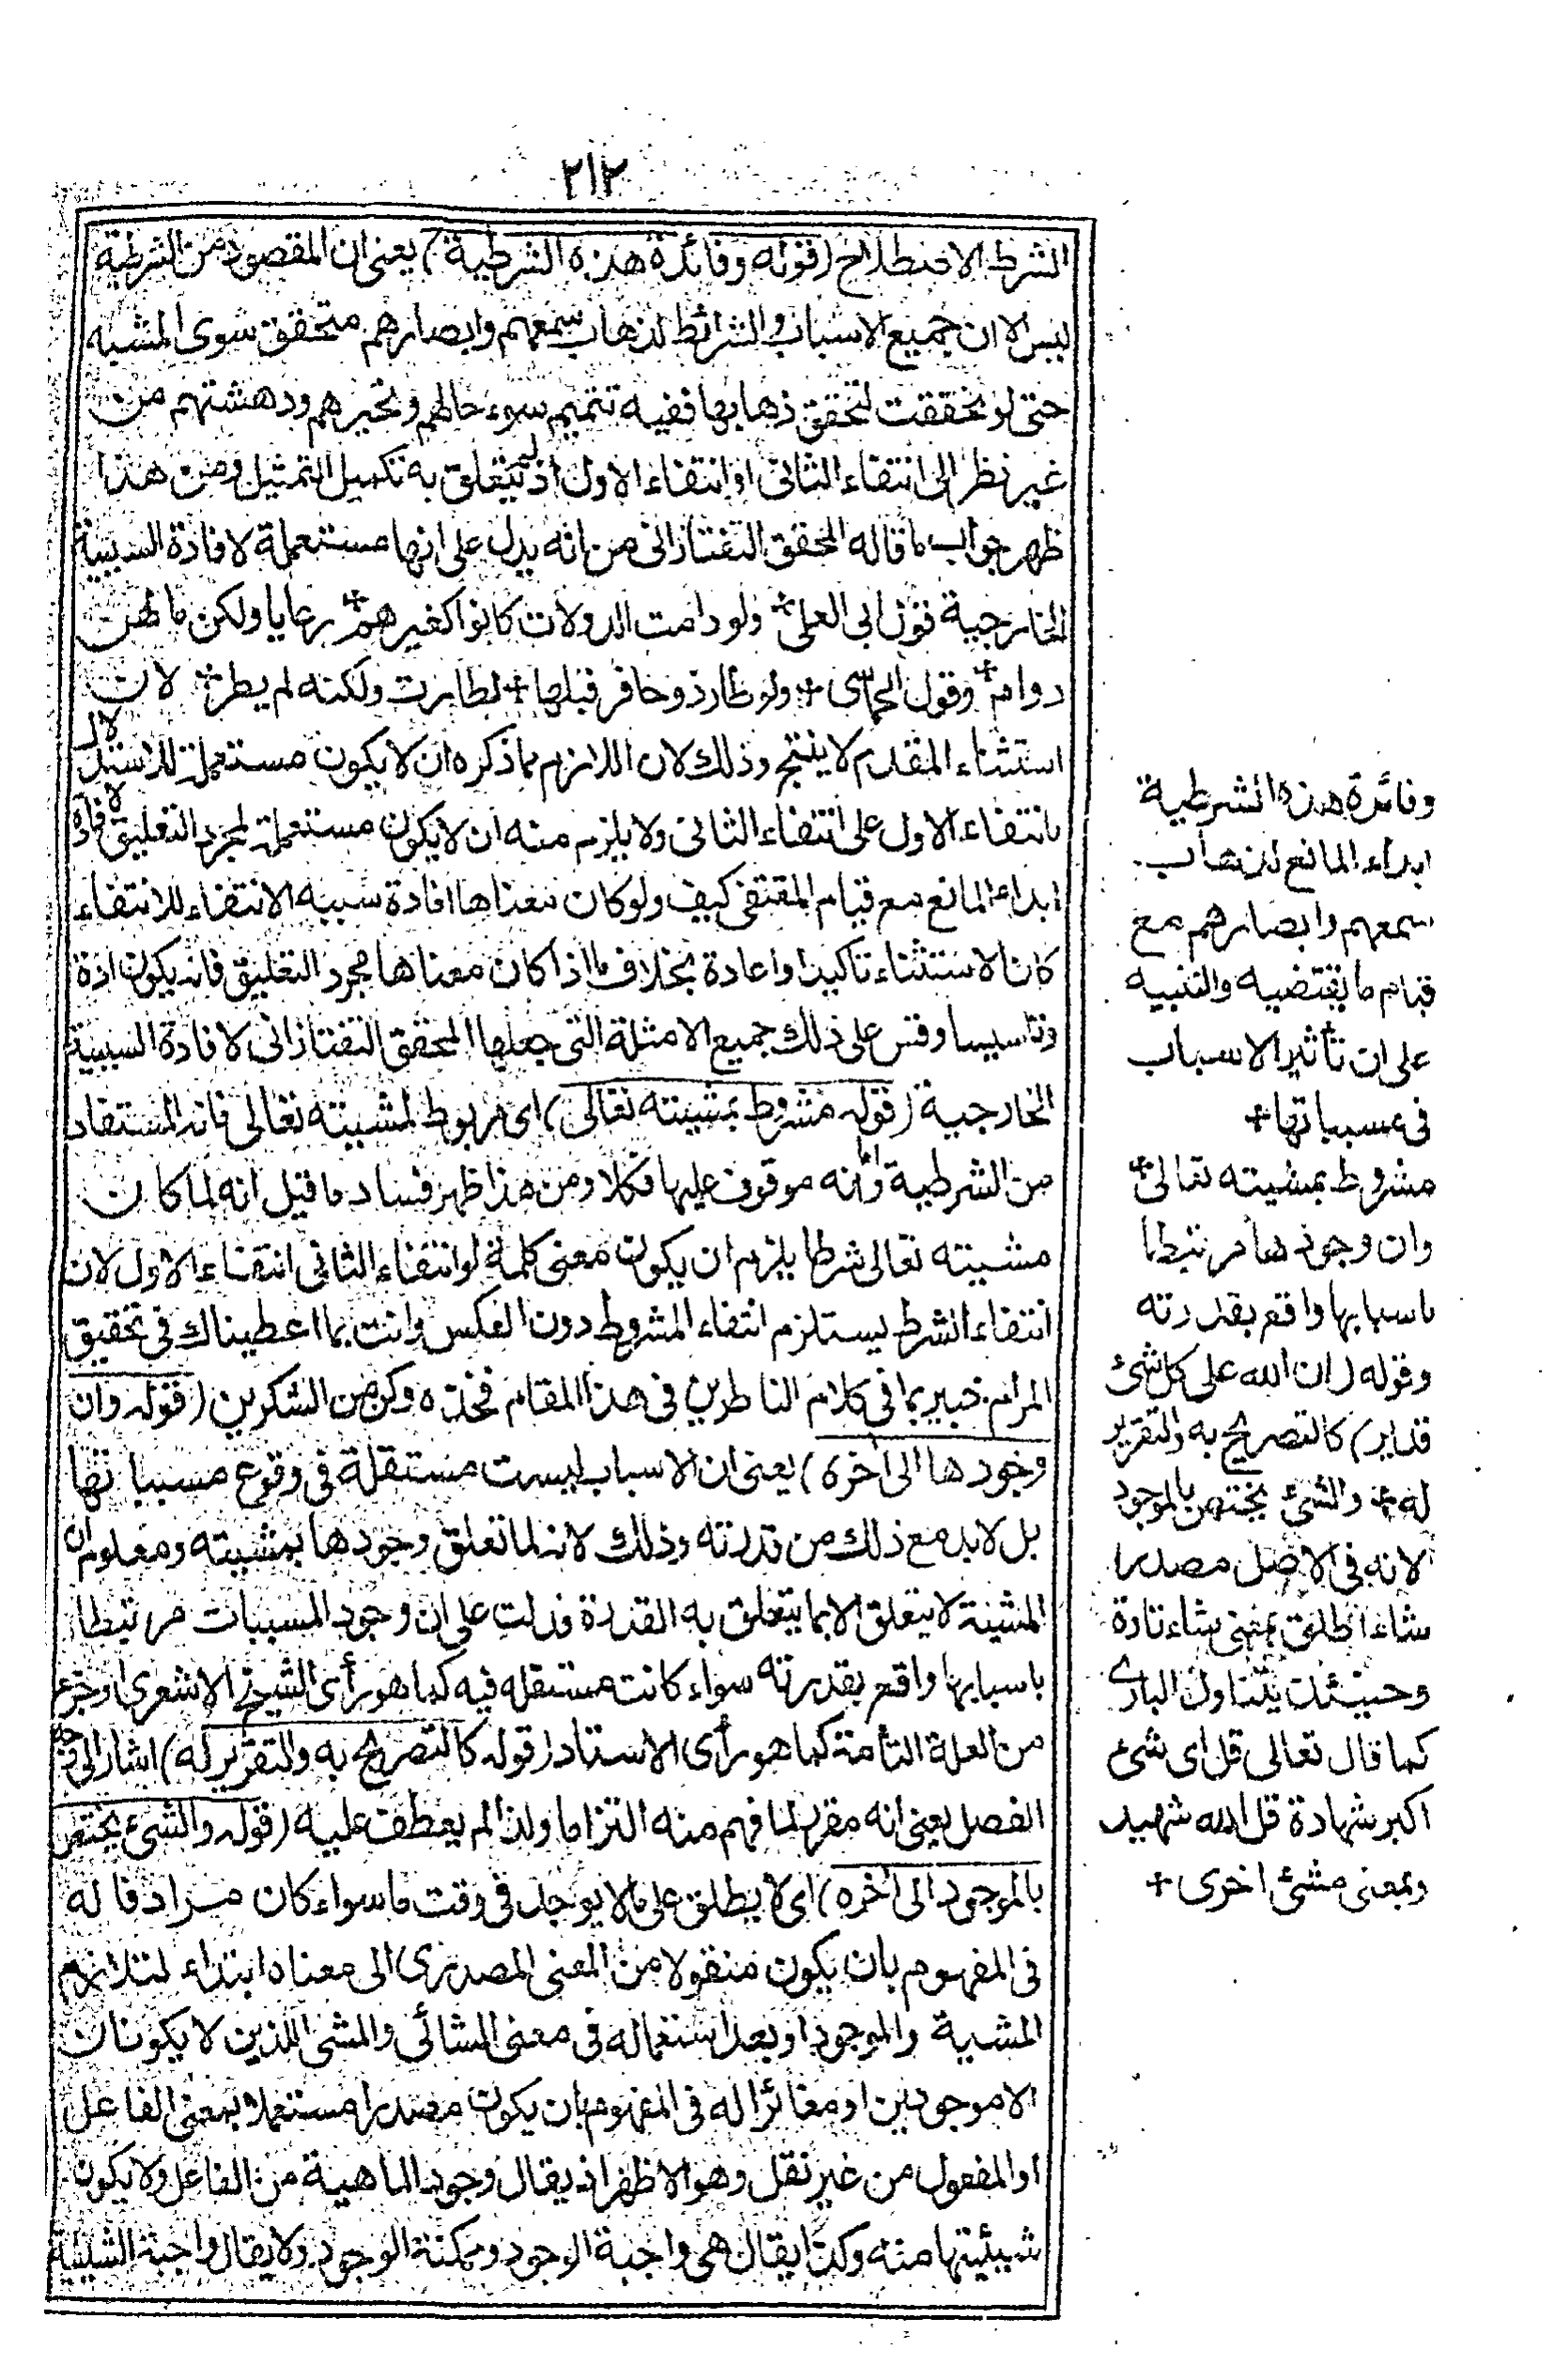 ٢١٢
الشرط الاصطلاحى (قوله وفائدة هذه الشرطية) يعنى ان المقصود من الشرطية
ليس الا ان جميع الاسباب والشرائط لذهاب سمعهم وابصارهم متحقق سوى المشية
حتى لو تحققت لتحقق ذهابها ففيه تتميم سوء حالهم وتحيرهم ودهشتهم من
غير نظر الى انتفاء الثانى او انتفاء الاول اذ لم يتعلق به تكميل التمثيل ومن هذا
ظهر جواب ما قاله المحقق التفتازانى من انه يدل على انها مستعملة لافادة السببية
الخارجية قول ابى العلى + ولو دامت الدولات كانوا كغيرهم + رعايا ولكن ما لهن
دوام + وقول الحماسى + ولو طار ذو حافر قبلها + لطارت ولكنه لم يطر + لان
استثناء المقدم لا ينتج وذلك لان اللازم مما ذكره ان لا يكون مستعملة للاستدلال
بانتفاء الاول على انتفاء الثانى ولا يلزم منه ان لا يكون مستعملة لمجرد التعليق لافادة
ابداء المانع مع قيام المقتضى كيف ولو كان معناها افادة سببية الانتفاء للانتفاء
كان الاستثناء تاكيدا واعادة بخلاف ما اذا كان معناها مجرد التعليق فانه يكون افادة
وتاسيسا وقس على ذلك جميع الامثلة التى جعلها المحقق التفتازانى لافادة السببية
الخارجية (قوله مشروط بمشيته تعالى) اى مربوط لمشيته تعالى فانه المستفاد
من الشرطية واما انه موقوف عليها فكلا ومن هذا ظهر فساد ما قيل انه لما كان
مشيته تعالى شرطا يلزم ان يكون معنى كلمة لو انتفاء الثانى انتفاء الاول لان
انتفاء الشرط يستلزم انتفاء المشروط دون العكس وانت بما اعطيناك فى تحقيق
المرام خبير بما فى كلام الناظرين فى هذا المقام فخذه وكن من الشكرين (قوله وان
وجودها الى اخره) يعنى ان الاسباب ليست مستقلة فى وقوع مسبباتها
بل لابد مع ذلك من قدرته وذلك لانه لما تعلق وجودها بمشيته ومعلوم ان
المشية لا يتعلق الا بما يتعلق به القدرة فدلت على ان وجود المسببات مرتبطا
باسبابها واقع بقدرته سواء كانت مستقلة فيه كما هو رأى الشيخ الاشعرى او جزء
من العلة التامة كما هو رأى الاستاد (قوله كالتصريح به والتقرير له) اشار الى وجه
الفصل يعنى انه مقرر لما فهم منه التزاما ولذا لم يعطف عليه (قوله والشئ يختص
بالموجود الى اخره) اى لا يطلق على ما لا يوجد فى وقت ما سواء كان مرادفا له
فى المفهوم بان يكون منقولا من المعنى المصدرى الى معناه ابتداء لتلازم
المشية والموجود او بعد استعماله فى معنى الشائى والمشئ اللذين لا يكونان
الا موجودين او مغائرا له فى المفهوم بان يكون مصدرا مستعملا بمعنى الفاعل
او المفعول من غير نقل وهو الاظهر اذ يقال وجود الماهية من الفاعل ولا يكون
شيئيتها منه وكذا يقال هى واجبة الوجود وممكنة الوجود ولا يقال واجبة الشيئية
وفائدة هذه الشرطية
ابداء المانع لذهاب
سمعهم وابصارهم مع
قيام ما يقتضيه والتنبيه
على ان تأثير الاسباب
فى مسبباتها +
مشروط بمشيته تعالى +
وان وجودها مرتبطا
باسبابها واقع بقدرته
وقوله (ان الله على كل شئ
قدير) كالتصريح به والتقرير
له + والشئ يختص بالموجود
لانه فى الاصل مصدر
شاء اطلق بمعنى شاء تارة
وحينئذ يتناول البارى
كما قال تعالى قل اى شئ
اكبر شهادة قل الله شهيد
وبمعنى مشئ اخرى +